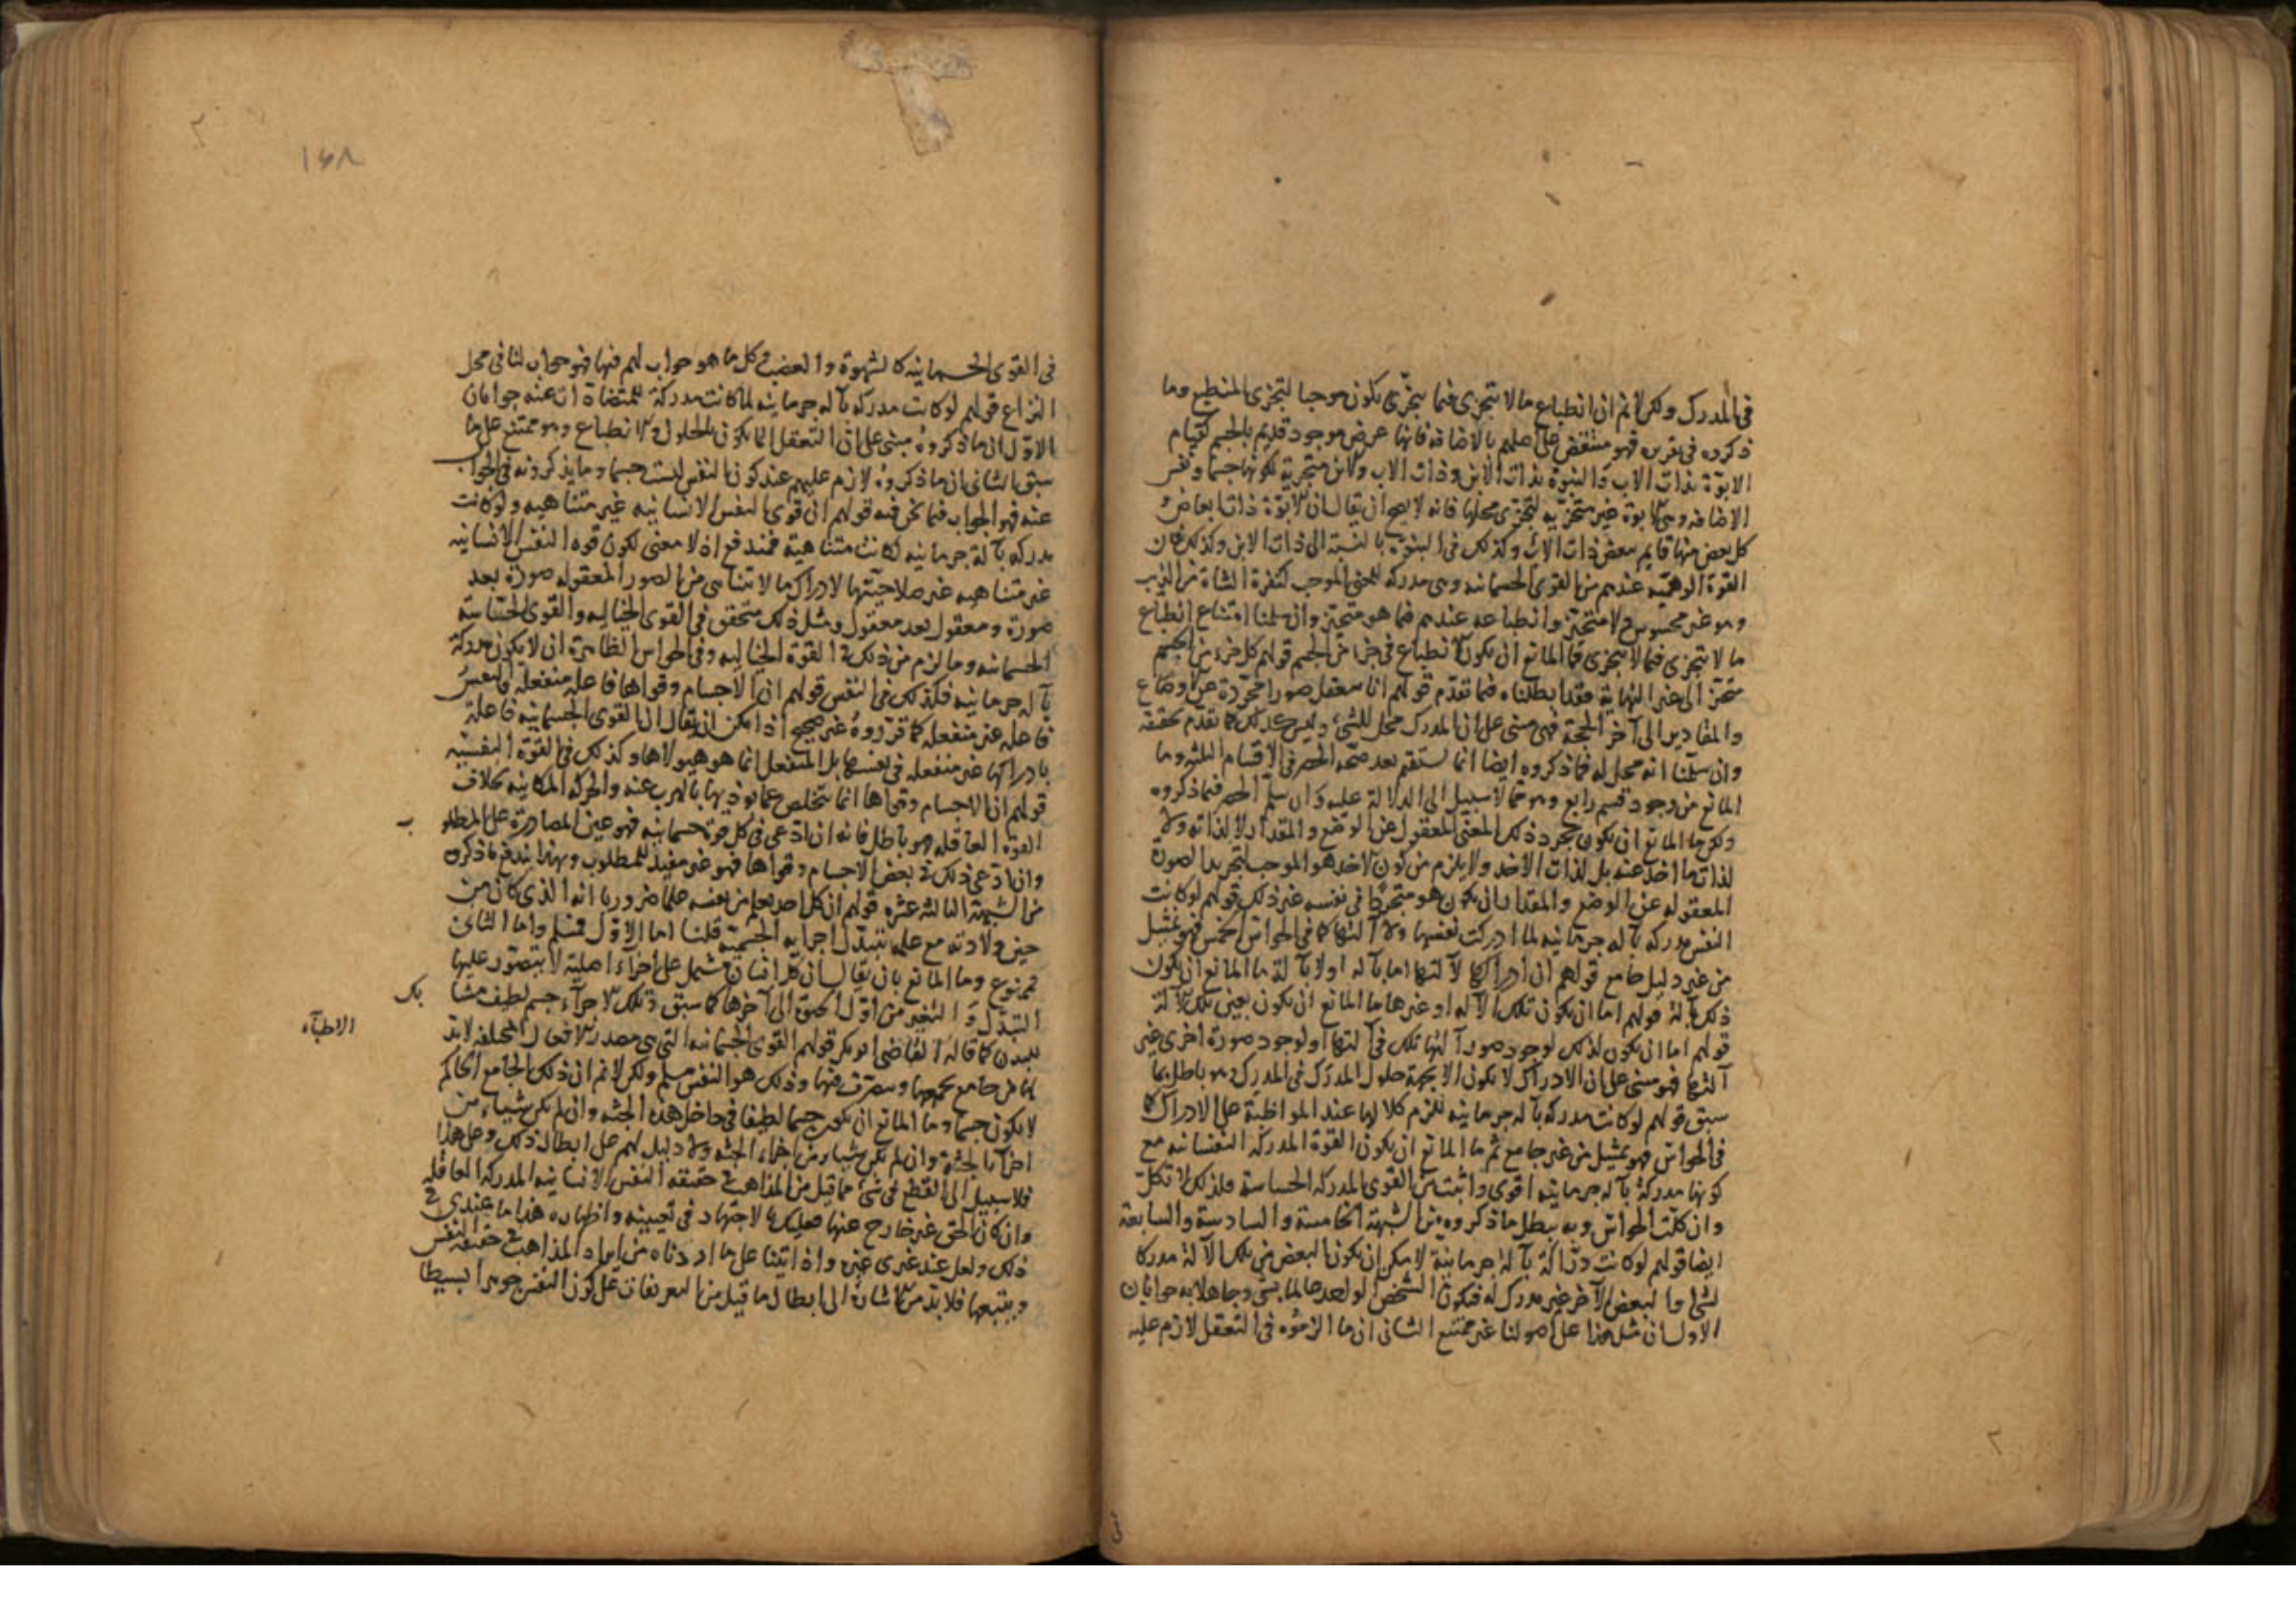 في المدرك ولكن لا نم ان انطباع ما لا يتجزى فيما يتجزى يكون موجبا لتجزى المنطبع وما
ذكروه في تقريره فهو منتقض على اصلهم بالاضافة فانها عرض موجود قديم بالجسم كقيام
الابوة بذات الاب والبنوة بذات الابن وذات الاب والابن متجزية لكونها جسما ونفس
الاضافة وهى الابوة غير متجزيه لتجزى محلها فانه لا يصح ان يقال ان الابوة ذات ابعاض و
كل بعض منها قايم ببعض ذات الاب وكذلك في البنوة بالنسبة الى ذات الابن وكذلك فان
القوة الوهمية عندهم من القوى الجسمانيه وهى مدركه للمعنى الموجب لنفرة الشاة من الذيب
وهو غير محسوس ولا متحيز وانطباعه عندهم فيما هو متحيز وان سلمنا امتناع انطباع
ما لا يتجزى فيما لا يتجزى فما المانع ان يكون الانطباع في جزء من الجسم قولهم كل جزء من الجسم
متحيز الى غير النهاية فقد ابطلناه فيما تقدم قولهم انا نتعقل صورا مجردة عن الاوضاع
والمقادير الى آخر الحجة فهى مبنى على ان المدرك محل للشى وليس كذلك لما تقدم تحقيقه
وان سلمنا انه محل له فما ذكروه ايضا انما يستقيم بعد صحة الحصر في الاقسام الثلثه وما
المانع من وجود قسم رابع وهو مما لا سبيل الى الدلالة عليه وان سلم الحصر فيما ذكروه
ولكن ما المانع ان يكون تجرد ذلك المعنى المعقول عن الوضع والمقدار لا لذاته ولا
لذات ما اخذ عنه بل لذات الاخذ ولا يلزم من كون الاخذ هو الموجب لتجريد الصورة
المعقوله عن الوضع والمقدار ان يكون هو متجردا في نفسه عن ذلك قولهم لو كانت
النفس مدركه بآلة جرمانيه لما ادركت نفسها ولا آلتها كما في الحواس الخمس فهو تمثيل
من غير دليل جامع قولهم ان ادراكها لآلتها اما بآلة اولا بآلة ما المانع ان يكون
ذلك بآلة قولهم اما ان يكون تلك الآلة او غيرها ما المانع ان يكون بعين تلك الآلة
قولهم اما ان يكون لذلك لوجود صورة آلتها تلك في آلتها او لوجود صورة اخرى غير
آلتها فهو مبنى على ان الادراك لا يكون الا بجهة حلول المدرك في المدرك وهو باطل بما
سبق قولهم لو كانت مدركه بآلة جرمانيه للزم كلالها عند المواظبة على الادراك كما
في الحواس فهو تمثيل من غير جامع ثم ما المانع ان يكون القوة المدركه النفسانيه مع
كونها مدركة بآلة جرمانيه اقوى واثبت من القوى المدركه الحساسة فلذلك لا تكل
وان كلت الحواس وبه يبطل ما ذكروه من الشبهة الخامسة والسادسة والسابعة
ايضا قولهم لو كانت دراكة بآلة جرمانية لا يمكن ان يكون البعض من تلك الآلة مدركا
لشى والبعض الآخر غير مدرك له فيكون الشخص الواحد عالما بشى وجاهلا به جوابان
الاول ان مثل هذا على اصولنا غير ممتنع الثانى ان ما الزموه في التعقل لازم عليه
١٤٨
في القوى الجسمانيه كالشهوة والغضب وكل ما هو جواب لهم فيها فهو جواب لنا في محل
النزاع قولهم لو كانت مدركه بآله جرمانيه لما كانت مدركة للمتضادات عنه جوابان
الاول ان ما ذكروه مبنى على ان التعقل انما يكون بالحلول والانطباع وهو ممتنع على ما
سبق الثانى ان ما ذكروه لازم عليهم عند كون النفس ليست جسما وما يذكرونه في الجواب
عنه فهو الجواب فيما نحن فيه قولهم ان قوى النفس الانسانيه غير متناهيه ولو كانت
مدركه بآلة جرمانيه لكانت متناهية فمندفع اذ لا معنى لكون قوة النفس الانسانيه
غير متناهيه غير صلاحيتها لادراك ما لا تتناهى من الصور المعقوله صورة بعد
صورة ومعقول بعد معقول ومثل ذلك متحقق في القوى الخياليه والقوى الحساسة
الجسمانيه وما لزم من ذلك في القوة الخياليه وفي الحواس الظاهرة ان لا يكون مدركة
بآلة جرمانيه فكذلك في النفس قولهم ان الاجسام وقواها فاعله منفعلة والنفس
فاعله غير منفعله كما قرروه غير صحيح اذا مكن ان يقال ان القوى الجسمانيه فاعلة
بادراكها غير منفعله في نفسها بل المنفعل انما هو هيولاها وكذلك في القوة النفسيه
قولهم ان الاجسام وقواها انما تتخلص عما يوذيها بالهرب عنه والحركة المكانيه بخلاف
القوة العاقله فهو باطل فانه ان ادعى في كل قوة جسمانيه فهو عين المصادرة على المطلو
ب
وان ادعى ذلك في بعض الاجسام وقواها فهو غير مفيد للمطلوب وبهذا يندفع ما ذكروه
من الشبهة الثالثه عشره قولهم ان كل احد يعلم من نفسه علما ضروريا انه الذى كان من
حين ولادته مع علمه بتبدل اجزايه الجسمية قلنا اما الاول فمسلم واما الثانى
فممنوع وما المانع بان يقال ان كل انسان مشتمل على اجزاء اصلية لا يتصور عليها
التبدل والتغير من اول الخلق الى آخرها كما سبق ذلك الاجزاء جسم لطيف مشا
بك
للبدن كما قاله القاضى ابو بكر قولهم القوى الجسمانيه التى هى مصدر الافعال المختلفه لا بد
الاطبآء
لها من جامع يجمعها ويتصرف فيها وذلك هو النفس مسلم ولكن لا نم ان ذلك الجامع الحاكم
لا يكون جسما وما المانع ان يكون جسما لطيفا في داخل هذه الجثه وان لم يكن شياء من
اجزاء الجثة وان لم يكن شياء من اجزاء الجثه ولا دليل لهم على ابطال ذلك وعلى هذا
فلا سبيل الى القطع في شى مما قيل من المذاهب في حقيقه النفس الانسانيه المدركه العاقله
وان كان الحق غير خارج عنها فعليك بالاجتهاد في تعيينه واظهاره هذا ما عندى في
ذلك ولعل عند غيرى غيره واذ اتينا على ما اردناه من ايراد المذاهب في حقيقة النفس
وتتبعها فلا بد من الاشارة الى ابطال ما قيل من التعريفات على كون النفس جوهرا بسيطا